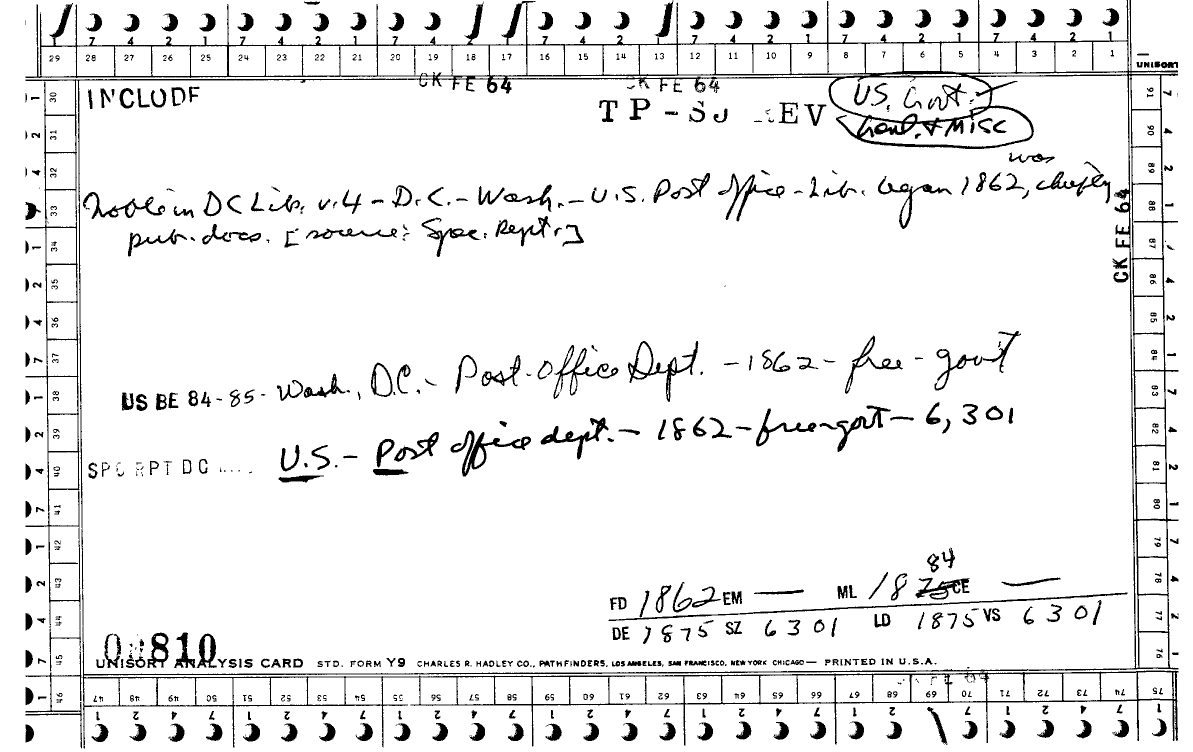 7 4 2 1 7 4 2 1 7 4 2 1 7 4 2 1 7 4 2 1 7 4 2 1 7 4 2 1
29 28 27 26 25 24 23 22 21 20 19 18 17 16 15 14 13 12 11 10 9 8 7 6 5 4 3 2 1
UNISORT
CK FE 64 CK FE 64
INCLUDE
TP-SJ REV
US. Govt.
Genl. & Misc
was
Noble in DC Lib. v.4 - D.C. - Wash. - U.S. Post office - Lib. began 1862, chiefly
pub. docs. [source: Spec. Rept.]
CK FE 64
US BE 84-85 - Wash., D.C. - Post-Office Dept. - 1862 - free - govt
SPC RPT DC U.S. - Post office dept. - 1862 - free - govt - 6,301
84
FD 1862 EM — ML 1875 CE —
DE 1875 SZ 6301 LD 1875 VS 6301
810
UNISORT ANALYSIS CARD STD. FORM Y9 CHARLES R. HADLEY CO., PATHFINDERS, LOS ANGELES, SAN FRANCISCO, NEW YORK CHICAGO — PRINTED IN U.S.A.
FE 64
47 48 49 50 51 52 53 54 55 56 57 58 59 60 61 62 63 64 65 66 67 68 69 70 71 72 73 74 75